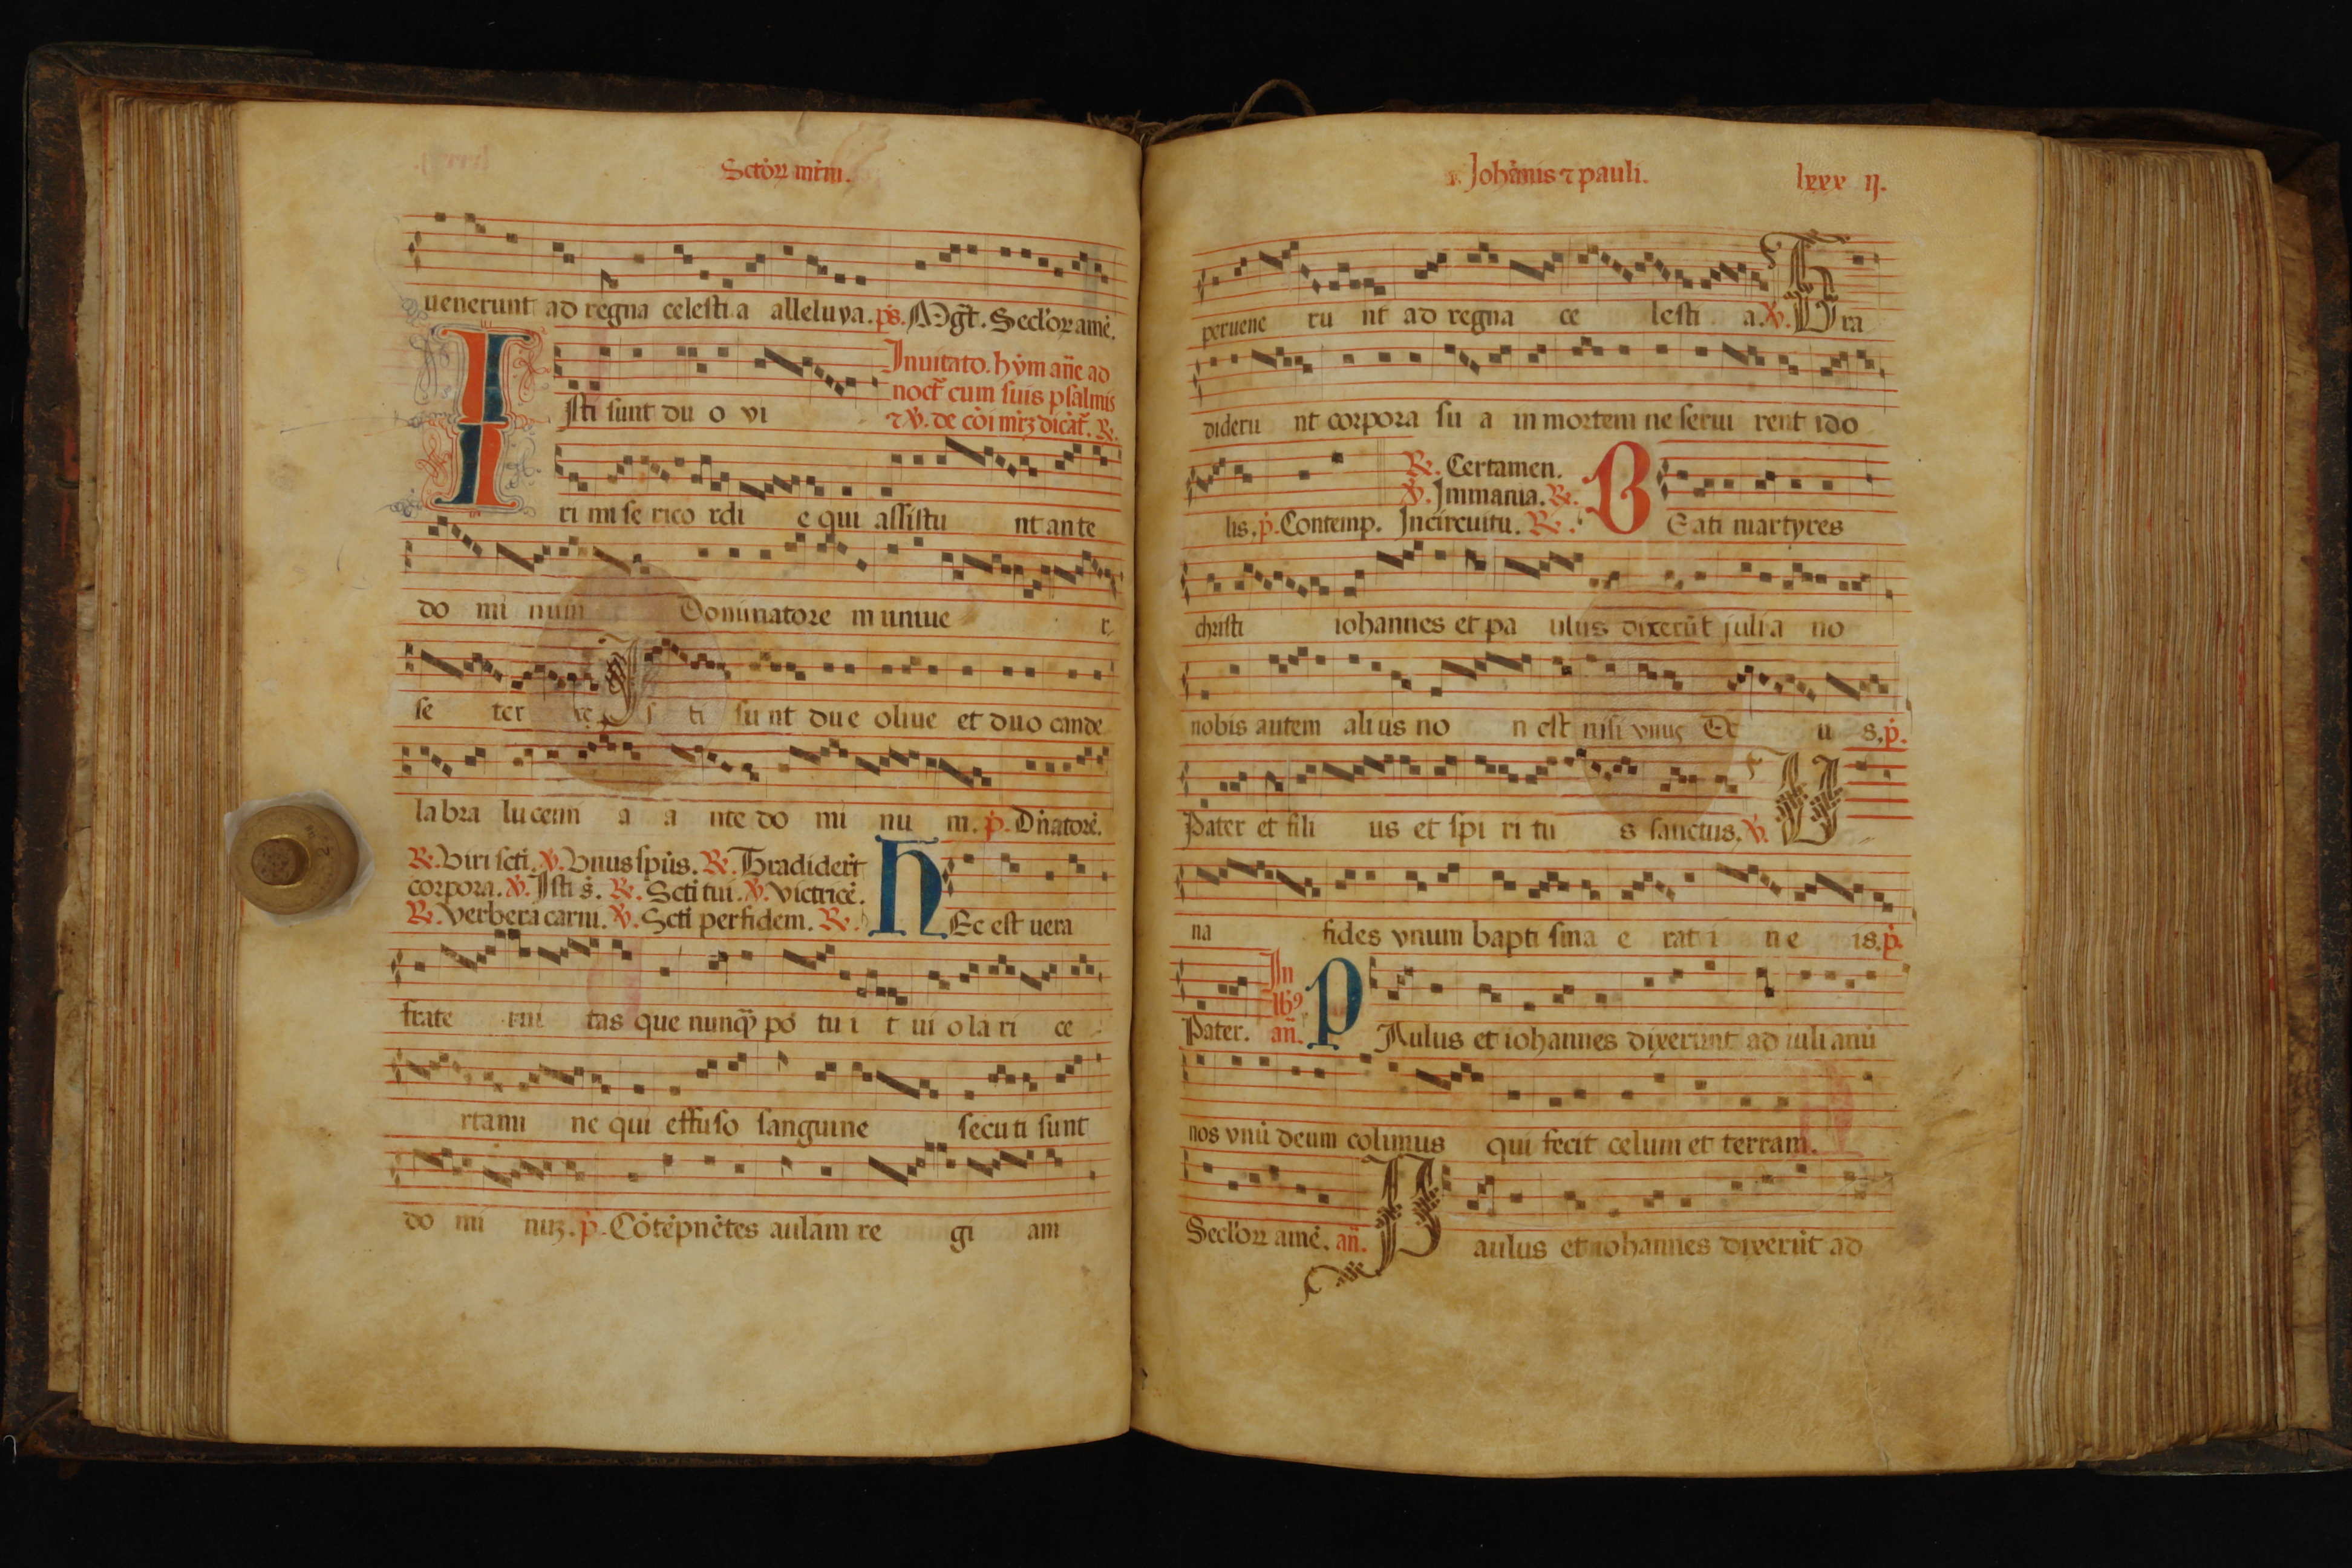 Sctoꝝ mrm.
uenerunt ad regna celesti a alleluya. ps. Mgt. Seclor amē.
Inuitato. hym añe ad
noct cum suis psalmis
I sti sunt du o vi
⁊ ℣. de cōi mrꝫ dicāt. ℟.
ri mi se rico rdi e qui assistu nt an te
do mi num Dominatore m uniue r
se ter re I s ti su nt du e oliue et duo cande
la bra lu cenn a a nte do mi nu m. p. Dñatorē.
℟. Viri scti. ℣. Vnus spūs. ℟. Tradiderūt
corpora. ℣. Isti s. ℟. Scti tui. ℣. Victricē.
℟. Verbera carni. ℣. Scti per fidem. ℟. H Ec est uera
frate rni tas que nunqꝫ po tu i t ui o la ri ce
rtami ne qui effuso sanguine secuti sunt
do mi nuꝫ. p. Cōtēpnētes aulam re gi am
Johānis ⁊ pauli. lxxx ij.
peruene ru nt ad regna ce lesti a. ℣. T ra
dideru nt corpora su a in mortem ne serui rent ido
℟. Certamen.
℣. Immania. ℟.
lis. p. Contemp. In circuitu. ℟. B Eati martyres
christi iohannes et pa ulus dixerūt julia no
nobis autem ali us no n est nisi vnus De u s. p.
Pater et fili us et spi ri tu s sanctus. ℣. U
na fides vnum bapti sma e rat i n e is. p.
In
Pater. añ. P Aulus et iohannes dixerunt ad iuli anū
nos vnū deum colimus qui fecit celum et terram.
Seclor amē. añ. P aulus et iohannes dixerūt ad